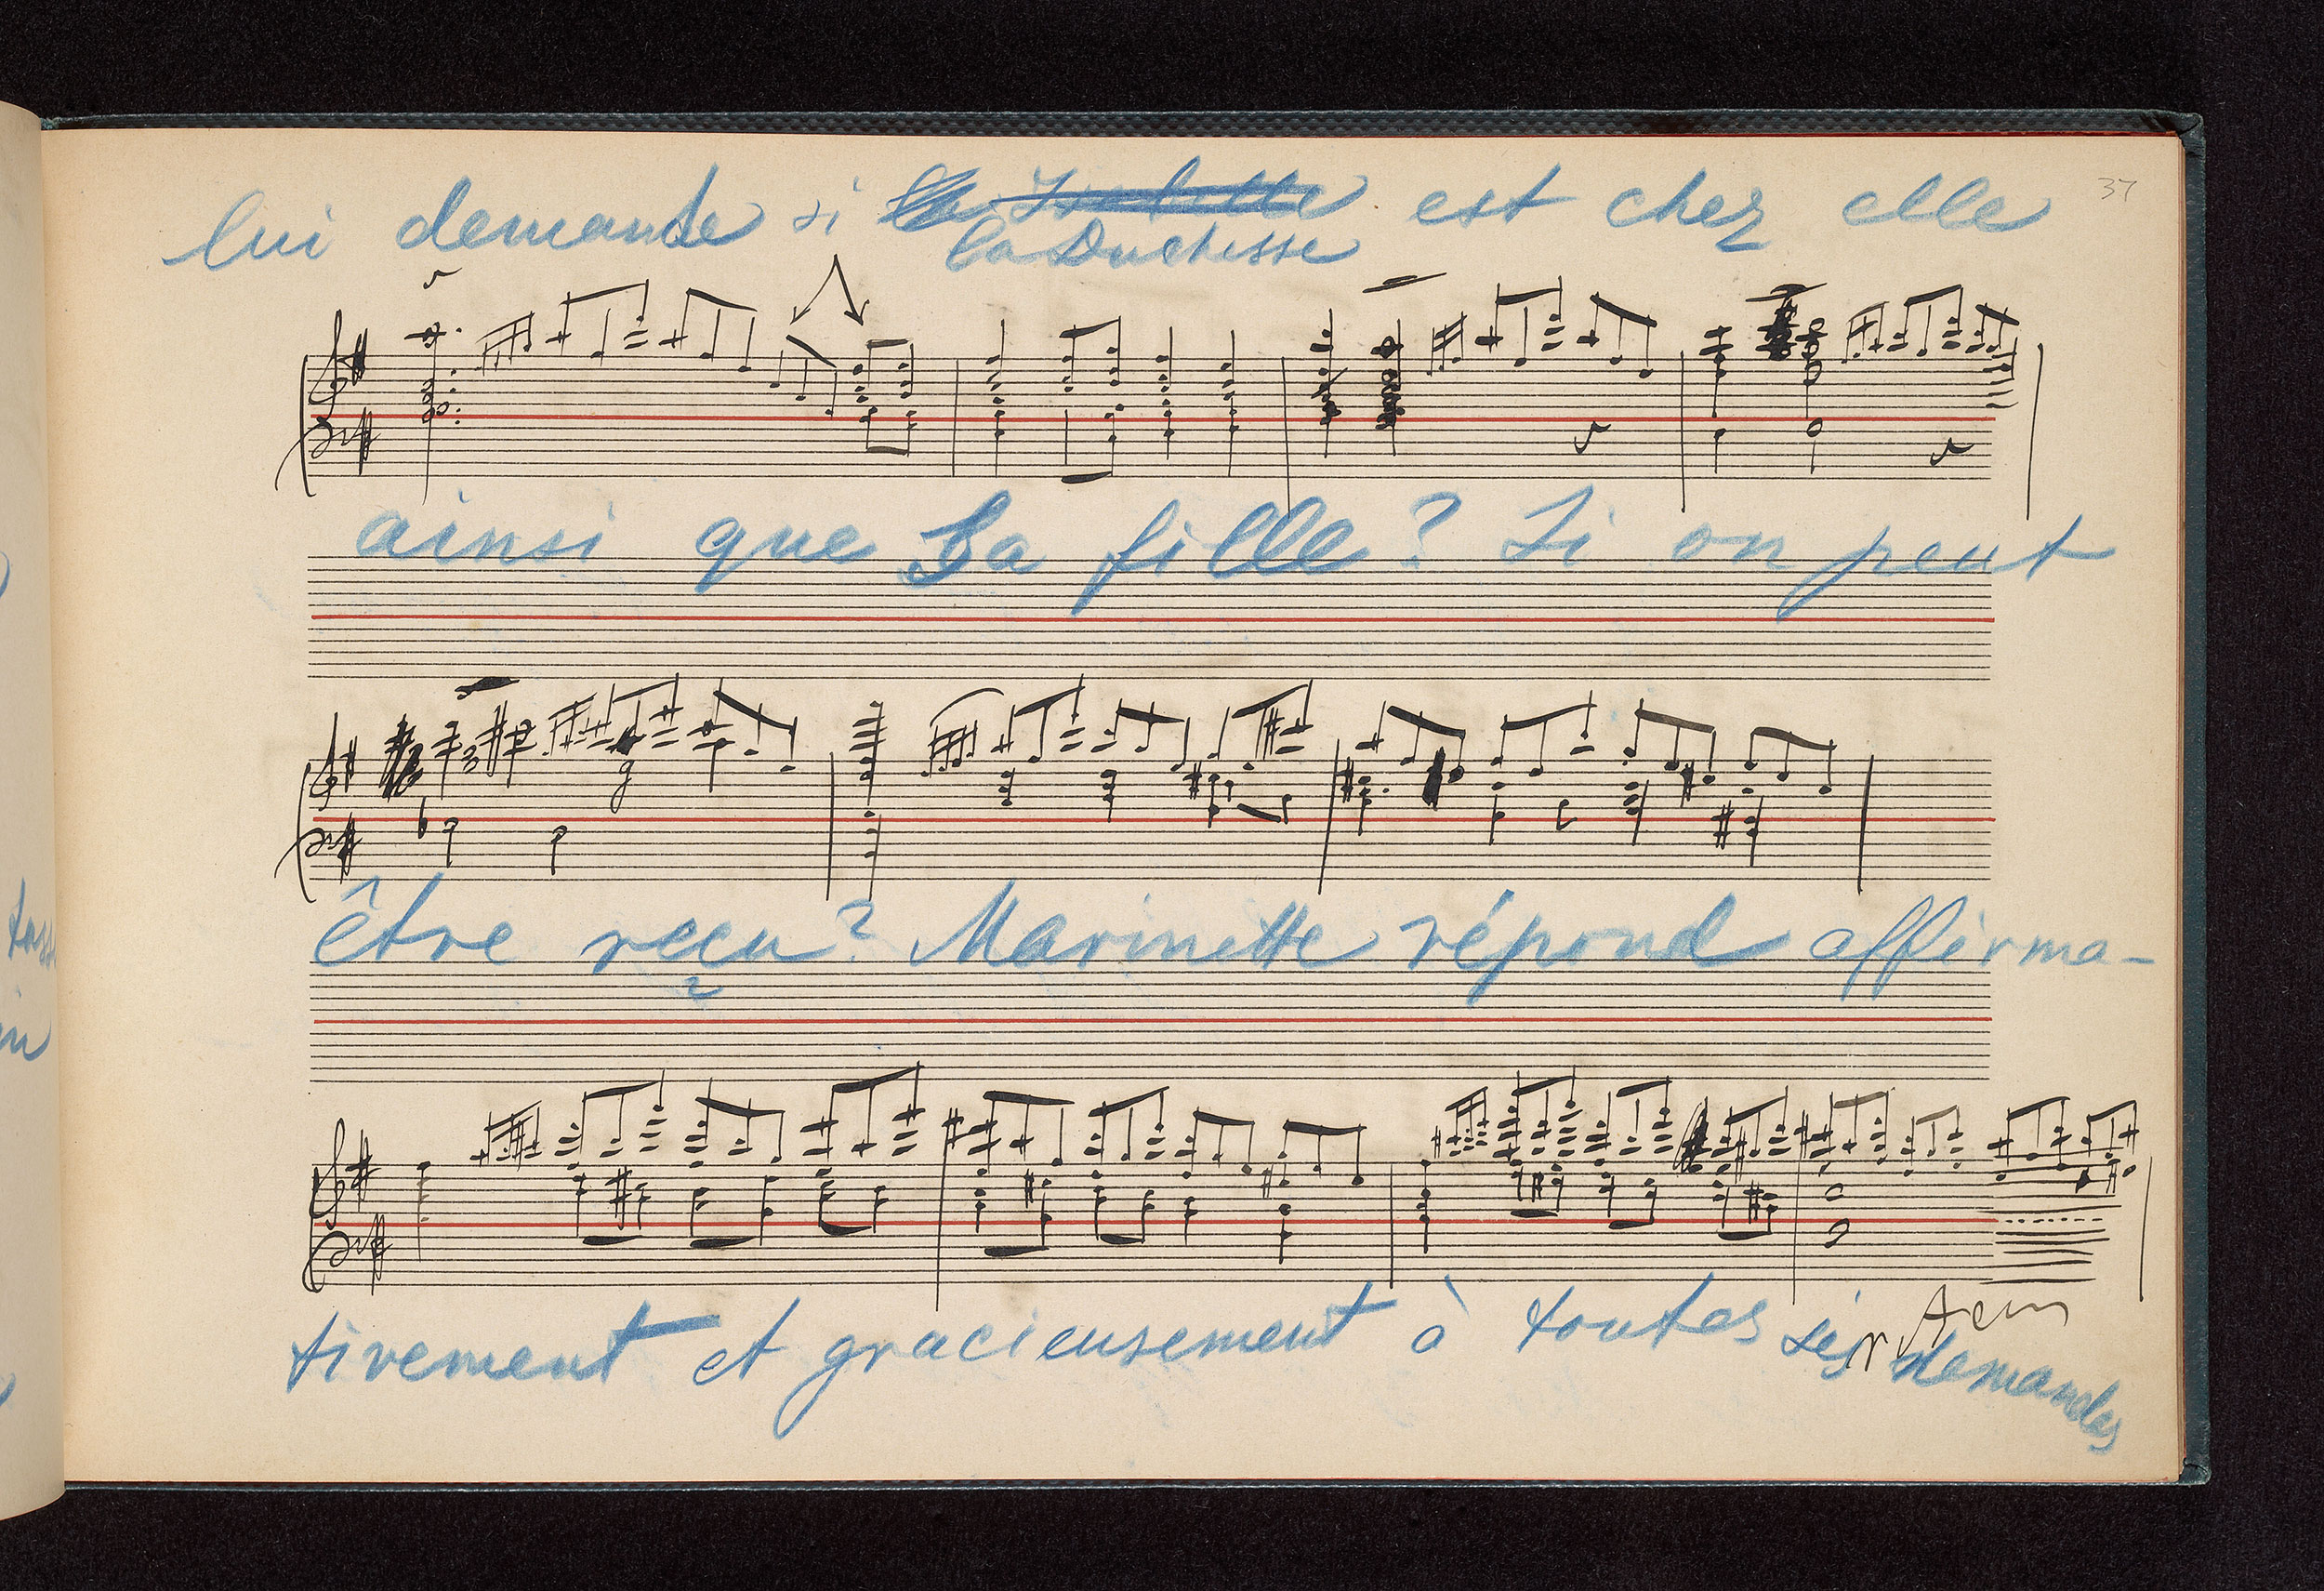 37
lui demande si la Isabelle est chez elle
la Duchesse
ainsi que Sa fille? Si on peut
être reçu? Marinette répond affirma-
tivement et gracieusement à toutes ses demandes